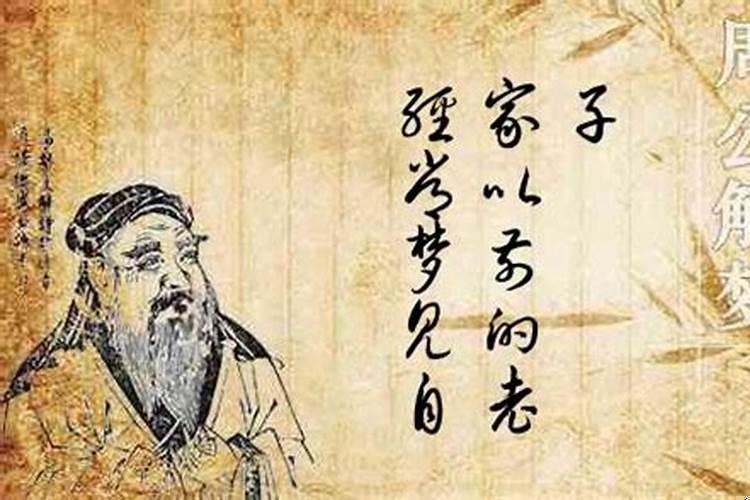 經常梦见自
家以前的老
子
周公解梦